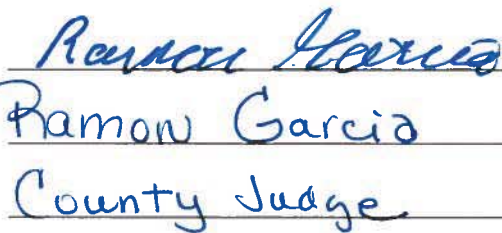 Ramon Garcia
Ramon Garcia
County Judge